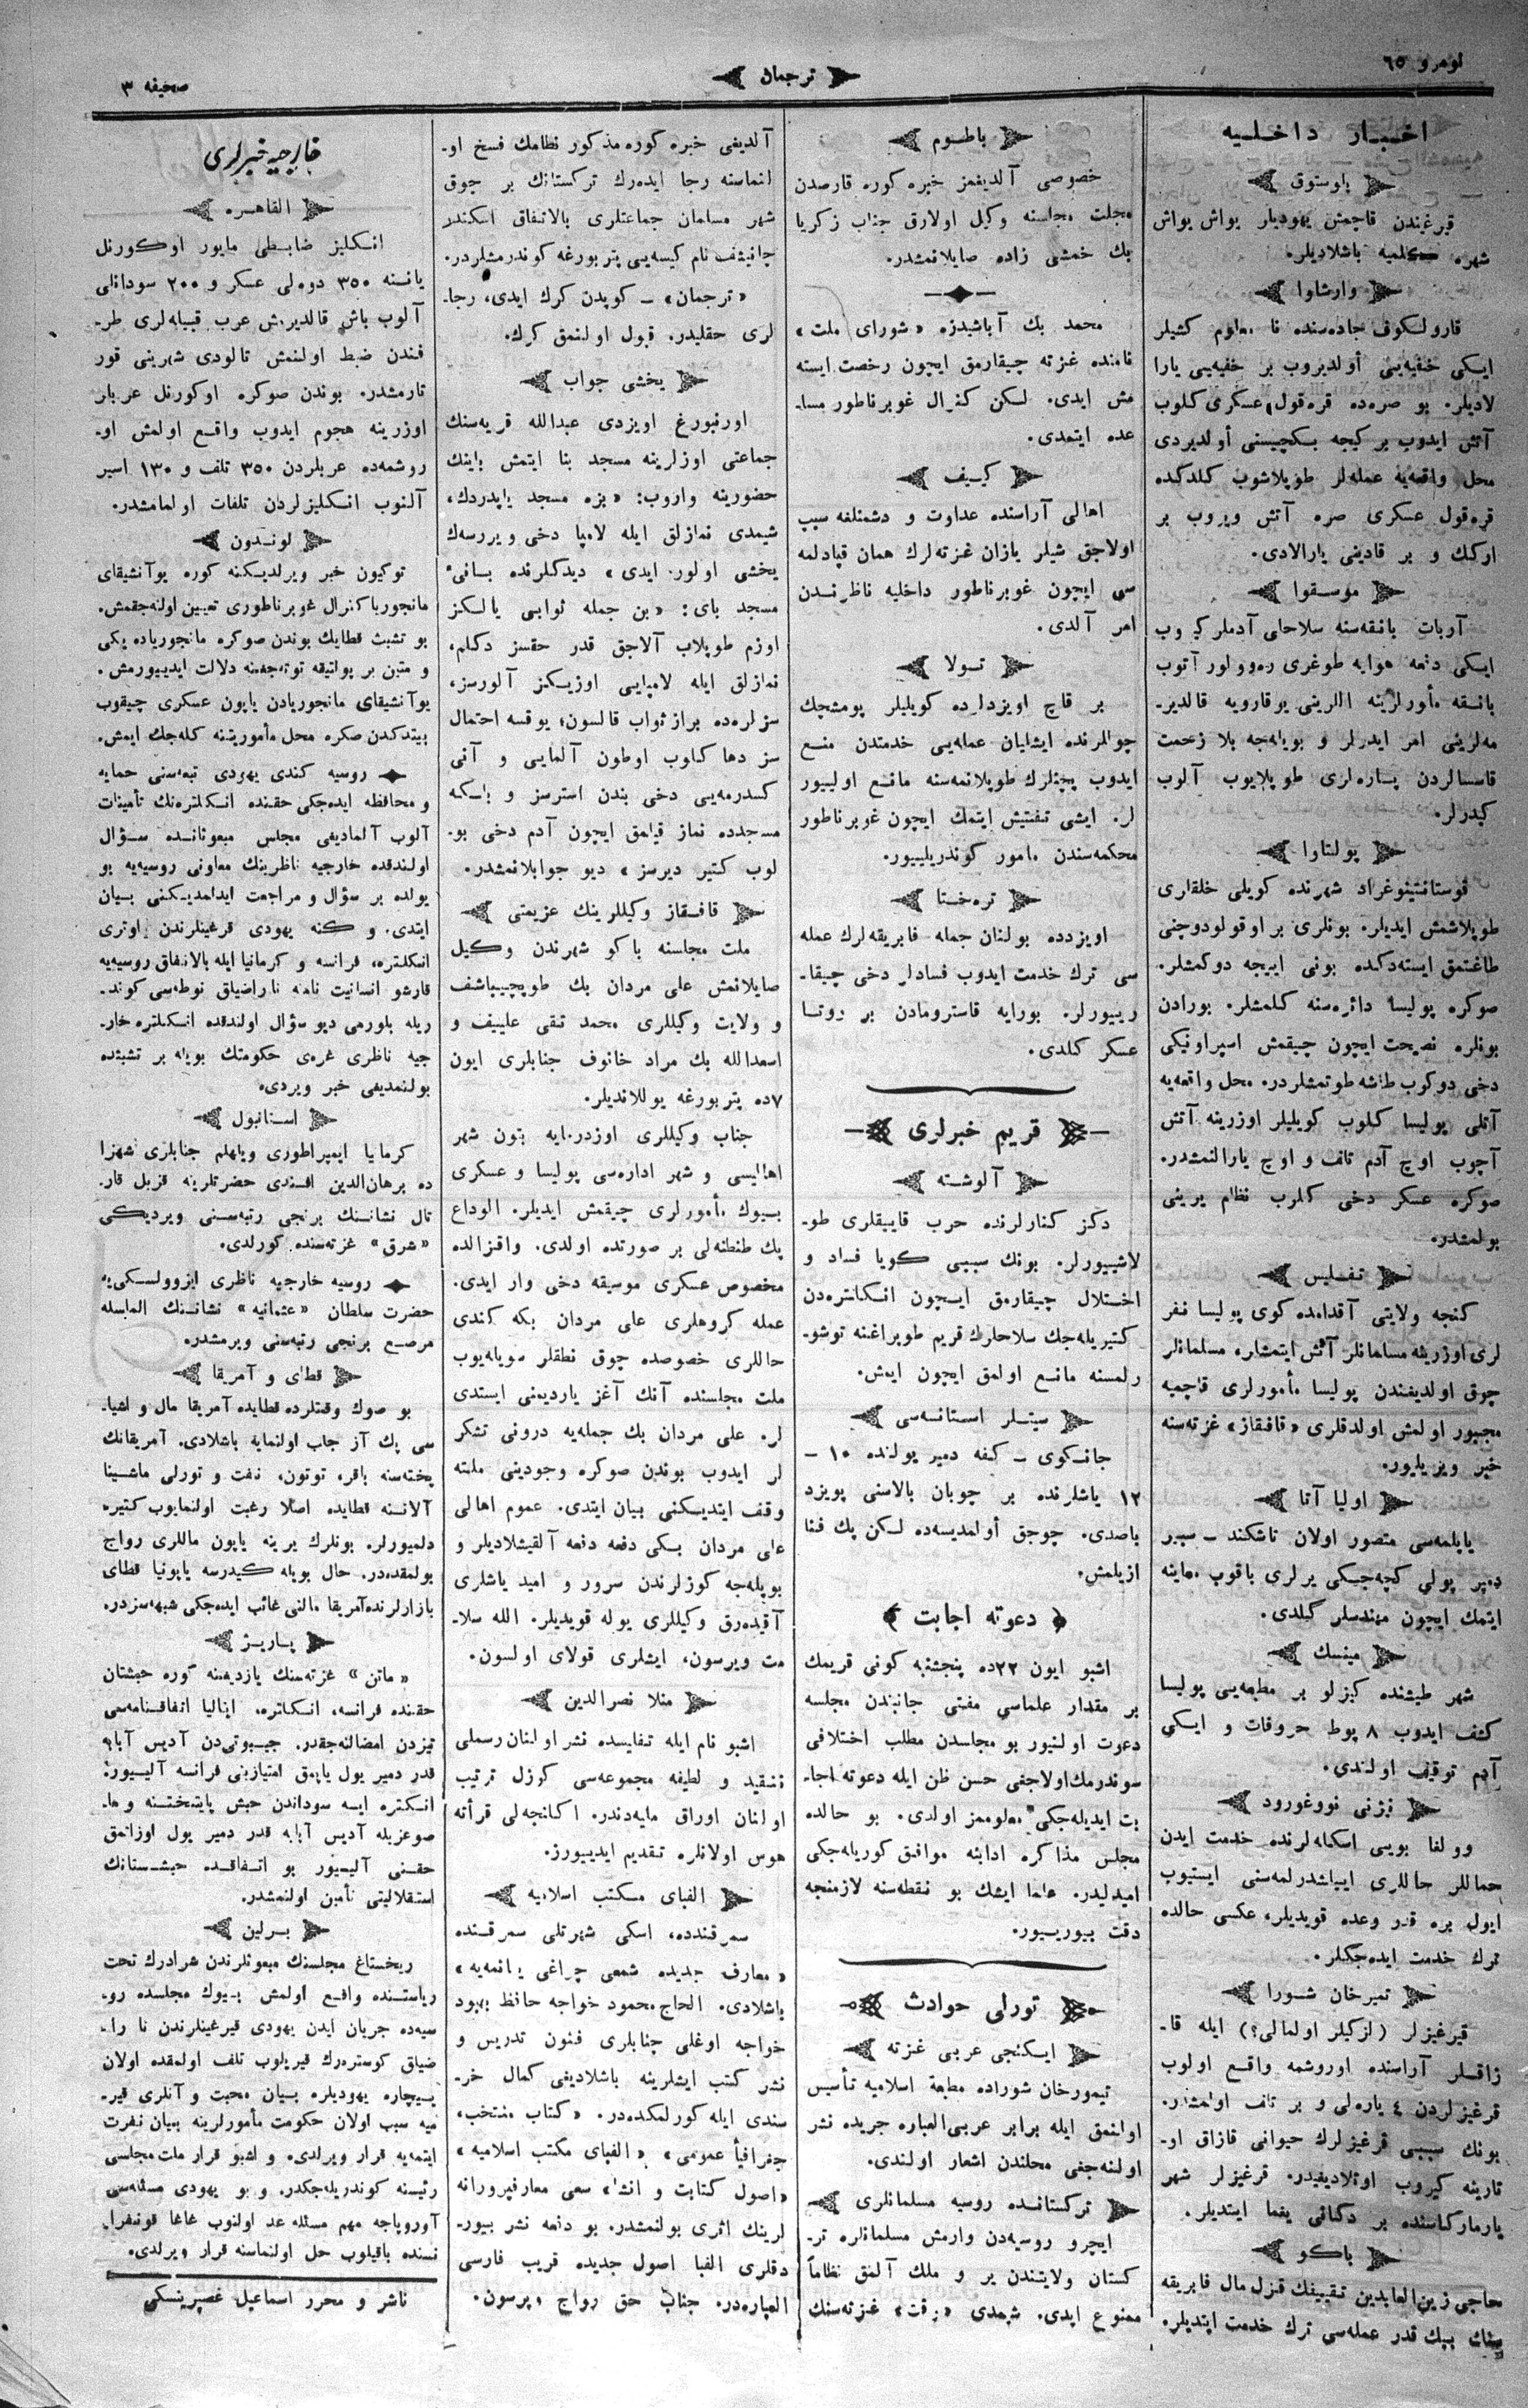 نومرو ٦٥
ترجمان
صحیفه ٣
اخبار داخلیه
بلوستوق
قیرغیندن قاچمش یهودیلر یواش یواش
شهره كلمیه باشلادیلر.
وارشاوا
قارولكوف جاده‌سنده نا معلوم كشیلر
ایكی خفیه‌یی أولدیروب بر خفیه‌یی یارا
لادیلر. بو صره‌ده قره‌قول عسكری كلوب
آتش ایدوب بر كیجه بكچیسنی أولدیردی
محل واقعه‌یه عمله‌لر طوپلاشوب كلدكده
قره‌قول عسكری صره آتش ویروب بر
اركك و بر قادینی یارالادی.
موسقوا
آربات بانقه‌سنه سلاحلی آدملر كیروب
ایكی دفعه هوایه طوغری ره‌وولور آتوب
بانقه مأمورلرینه اللرینی یوقارویه قالدیر-
مه‌لرینی امر ایدرلر و بویله‌جه بلا زحمت
قاسسالردن پاره‌لری طوپلایوب آلوب
كیدرلر.
پولتاوا
قوستانتینوغراد شهرنده كویلی خلقلری
طوپلاشمش ایدیلر. بونلری بر اوقولودوچنی
طاغتمق ایسته‌دكده بونی اییجه دوكمشلر.
صوكره پولیسا دائره‌سنه كلمشلر. بورادن
بونلره نصیحت ایچون چیقمش اسپراونیكی
دخی دوكوب طاشه طوتمشلردر. محل واقعه‌یه
آتلی پولیسا كلوب كویلیلر اوزرینه آتش
آچوب اوچ آدم تلف و اوچ یارالنمشدر.
صوكره عسكر دخی كلوب نظام یرینی
بولمشدر.
تفلیس
كنجه ولایتی آقدامده كوی پولیسا نفر
لری اوزرینه مسلمانلر آتش ایتمشلر. مسلمانلر
چوق اولدیغندن پولیسا مأمورلری قاچمیه
مجبور اولمش اولدقلری «قافقاز» غزته‌سنه
خبر ویریلیور.
اولیا آتا
یاپلمه‌سی متصور اولان تاشكند ـ سیبر
دمیر یولی كچه‌جكی یرلری باقوب معاینه
ایتمك ایچون مهندسلر كیلدی.
مینسك
شهر طیشنده كیزلو بر مطبعه‌یی پولیسا
كشف ایدوب ٨ پوط حروفات و ایكی
آدم توقیف اولندی.
نیژنی نووغورود
وولغا بویی اسكله‌لرنده خدمت ایدن
حماللر حاللری اییلشدرلمه‌سنی ایستیوب
ایول بره قدر وعده قویدیلر، عكسی حالده
ترك خدمت ایده‌جكلر.
تمیرخان شورا
قیرغیزلر (لزكیلر اولمالی؟) ایله قا-
زاقلر آراسنده اوروشمه واقع اولوب
قرغیزلردن ٤ یاره‌لی و بر تلف اولمشدر.
بونك سببی قرغیزلرك حیوانی قازاق او-
تارینه كیروب اوتلادیغیدر. قرغیزلر شهر
یارماركاسنده بر دكانی یغما ایتدیلر.
باكو
حاجی زین العابدین تقییفك قزل مال فابریقه
سنك بیك قدر عمله‌سی ترك خدمت ایتدیلر.
باطوم
خصوصی آلدیغمز خبره كوره قارصدن
مجلت مجلسنه وكیل اولارق جناب زكریا
بك خمشی زاده صایلانمشدر.
محمد بك آباشیدزه «شورای ملت»
نامنده غزته چیقارمق ایچون رخصت ایسته
مش ایدی. لكن كنرال غوبرناطور مسا-
عده ایتمدی.
كیف
اهالی آراسنده عداوت و دشمنلغه سبب
اولاجق شیلر یازان غزته‌لرك همان قپادلمه
سی ایچون غوبرناطور داخلیه ناظرندن
امر آلدی.
تولا
بر قاچ اویزدلرده كویلیلر پومشچك
چوللرنده ایشلیان عمله‌یی خدمتدن منع
ایدوب پچنلرك طوپلانمه‌سنه مانع اولیور
لر. ایشی تفتیش ایتمك ایچون غوبرناطور
محكمه‌سندن مأمور كوندریلییور.
تره‌ختا
اویزدده بولنان جمله فابریقه‌لرك عمله
سی ترك خدمت ایدوب فسادلر دخی چیقا-
رییورلر. بورایه قاسترومادن بر روتا
عسكر كلدی.
قریم خبرلری
آلوشته
دكز كنارلرنده حرب قاییقلری طو-
لاشییورلر. بونك سببی كویا فساد و
اختلال چیقارمق ایچون انكلتره‌دن
كتیریله‌جك سلاحلرك قریم طوپراغنه توشو-
رلمسنه مانع اولمق ایچون ایمش.
سیتلر استانسه‌سی
جانكوی ـ كفه دمیر یولنده ١٠ ـ
١٢ یاشلرنده بر چوبان بالاسنی پویزد
باصدی. چوجق أولمدیسه‌ده لكن پك فنا
ازیلمش.
دعوته اجابت
اشبو ایون ٢٢ده پنجشنبه كونی قریمك
بر مقدار علماسی مفتی جانبندن مجلسه
دعوت اولنیور بو مجلسدن مطلب اختلافی
سوندرمك اولاجغی حسن ظن ایله دعوته اجا-
بت ایدیله‌جكی معلوممز اولدی. بو حالده
مجلس مذاكره ادابنه موافق كوریله‌جكی
امیدلیدر. علما ایشك بو نقطه‌سنه لازمنجه
دقت بیوریور.
تورلی حوادث
ایكنجی عربی غزته
تیمورخان شوراده مطبعهٔ اسلامیه تأسیس
اولنمق ایله برابر عربی‌العباره جریده نشر
اولنه‌جغی محلندن اشعار اولندی.
تركستانده روسیه مسلمانلری
ایچرو روسیه‌دن وارمش مسلمانلره تر-
كستان ولایتندن یر و ملك آلمق نظاماً
ممنوع ایدی. شمدی «وقت» غزته‌سنك
آلدیغی خبره كوره مذكور نظامك فسخ او-
لنماسنه رجا ایدەرك تركستانك بر چوق
شهر مسلمان جماعتلری بالاتفاق اسكندر
چانیشف نام كیسه‌یی پتربورغه كوندرمشلردر.
«ترجمان» ـ كوپدن كرك ایدی، رجا-
لری حقلیدر. قبول اولنمق كرك.
یخشی جواب
اورنبورغ اویزدی عبدالله قریه‌سنك
جماعتی اوزلرینه مسجد بنا ایتمش باینك
حضورینه واروب: «بزه مسجد یاپدردك،
شیمدی نمازلق ایله لامپا دخی ویررسه‌ك
یخشی اولور ایدی» دیدكلرنده بانیٔ
مسجد بای: «بن جمله ثوابی یالكز
اوزم طوپلاب آلاجق قدر حقسز دكلم،
نمازلق ایله لامپایی اوزیكز آلورسز،
سزلره‌ده براز ثواب قالسون؛ یوقسه احتمال
سز دها كلوب اوطون آلمایی و آنی
كسدرمه‌یی دخی بندن استرسز و باشكه
مسجدده نماز قیلمق ایچون آدم دخی بو-
لوب كتیر دیرسز» دیو جوابلانمشدر.
قافقاز وكیللرینك عزیمتی
ملت مجلسنه باكو شهرندن وكیل
صایلانمش علی مردان بك طوپچیباشف
و ولایت وكیللری محمد تقی علییف و
اسعدالله بك مراد خانوف جنابلری ایون
٧ده پتربورغه یوللاندیلر.
جناب وكیللری اوزدرمایه بتون شهر
اهالیسی و شهر اداره‌سی پولیسا و عسكری
بیوك مأمورلری چیقمش ایدیلر. الوداع
پك طنطنه‌لی بر صورتده اولدی. واقزالده
مخصوص عسكری موسیقه دخی وار ایدی.
عمله كروهلری علی مردان بكه كندی
حاللری خصوصده چوق نطقلر سویله‌یوب
ملت مجلسنده آنك آغز یاردیمنی ایستدی
لر. علی مردان بك جمله‌یه درونی تشكر
لر ایدوب بوندن صوكره وجودینی ملته
وقف ایتدیكنی بیان ایتدی. عموم اهالی
علی مردان بكی دفعه دفعه آلقیشلادیلر و
بویله‌جه كوزلرندن سرور و امید یاشلری
آقیده‌رق وكیللری یوله قویدیلر. الله سلا-
مت ویرسون، ایشلری قولای اولسون.
ملا نصرالدین
اشبو نام ایله تفلیسده نشر اولنان رسملی
تنقید و لطیفه مجموعه‌سی كوزل ترتیب
اولنان اوراق مایه‌دندر. اكلنجه‌لی قرأته
هوس اولانلره تقدیم ایدییورز.
الفبای مكتب اسلامیه
سمرقندده، اسكی شهرتلی سمرقنده
«معارف جدیده شمعی چراغی یانمه‌یه»
باشلادی. الحاج محمود خواجه حافظ بهبود
خواجه اوغلی جنابلری فنون تدریس و
نشر كتب ایشلرینه باشلادیغی كمال خر-
سندی ایله كورلمكده‌در. «كتاب منتخب،
جغرافیأ عمومی» «الفبای مكتب اسلامیه»
«اصول كتابت و انشا» سعی معارفپرورانه
لرینك اثری بولنمشدر. بو دفعه نشر بیور-
دقلری الفبا اصول جدیده قریب فارسی
العباره‌در. جناب حق رواج ویرسون.
خارجیه خبرلری
القاهره
انكلیز ضابطی مایور اوكورنل
یاننه ٣٥٠ دوه‌لی عسكر و ٢٠٠ سودانلی
آلوب باش قالدیرمش عرب قبیله‌لری طر-
فندن ضبط اولنمش تالودی شهرینی قور
تارمشدر. بوندن صوكره اوكورنل عربلر
اوزرینه هجوم ایدوب واقع اولمش او-
روشمه‌ده عربلردن ٣٥٠ تلف و ١٣٠ اسیر
آلنوب انكلیزلردن تلفات اولمامشدر.
لوندون
توكیون خبر ویرلدیكنه كوره یوآنشیقای
مانجوریا كنرال غوبرناطوری تعیین اولنه‌جقمش.
بو تشبث قطایك بوندن صوكره مانجوریاده یكی
و متین بر پولتیقه توته‌جغنه دلالت ایدییورمش.
یوآنشیقای مانجوریادن یاپون عسكری چیقوب
بیتدكدن صكره محل مأموریتنه كله‌جك ایمش.
روسیه كندی یهودی تبعه‌سنی حمایه
و محافظه ایده‌جكی حقنده انكلتره‌نك تأمینات
آلوب آلمادیغی مجلس مبعوثانده سؤال
اولندقده خارجیه ناظرینك معاونی روسیه‌یه بو
یولده بر سؤال و مراجعت ایدلمدیكنی بیان
ایتدی. و كنه یهودی قرغینلرندن اوتری
انكلتره، فرانسه و كرمانیا ایله بالاتفاق روسیه‌یه
قارشو انسانیت نامنه ناراضیلق نوطه‌سی كوند-
ریله بلورمی دیو سؤال اولندقده انكلتره خار-
جیه ناظری غره‌ی حكومتك بویله بر تشبثده
بولنمدیغی خبر ویردی.
استانبول
كرمانیا ایمپراطوری ویلهلم جنابلری شهزا
ده برهان‌الدین افندی حضرتلرینه قزیل قار-
تال نشاننك برنجی رتبه‌سنی ویردیكی
«شرق» غزته‌سنده كورلدی.
روسیه خارجیه ناظری ایزوولسكی‌یه
حضرت سلطان «عثمانیه» نشاننك الماسله
مرصع برنجی رتبه‌سنی ویرمشدر.
قطای و آمریقا
بو صوك وقتلرده قطایده آمریقا مال و اشیا-
سی پك آز جلب اولنمایه باشلادی. آمریقانك
پخته‌سنه باقره توتون، نفت و تورلی ماشینا
آلاتنه قطایده اصلا رغبت اولنمایوب كتیره
دلمیورلر. بونلرك یرینه یاپون ماللری رواج
بولمقده‌در. حال بویله كیدرسه یاپونیا قطای
بازارلرنده آمریقا مالنی غائب ایده‌جكی شبهه‌سزدر.
پاریژ
«ماتن» غزته‌سنك یازدیغنه كوره حبشتان
حقنده فرانسه، انكلتره، ایتالیا اتفاقنامه‌سی
تیزدن امضالنه‌جقدر. جیبوتی‌دن آدیس آبابه
قدر دمیر یول یاپمق امتیازینی فرانسه آلییور؛
انكلتره ایسه سوداندن حبش پایتختنه و ما-
صوعزیله آدیس آبابه قدر دمیر یول اوزاتمق
حقنی آلییور بو اتفاقده حبشستانك
استقلالیتی تأمین اولنمشدر.
برلین
ریخستاغ مجلسنك مبعوثلرندن شرادرك تحت
ریاستنده واقع اولمش بیوك مجلسده رو-
سیه‌ده جریان ایدن یهودی قیرغینلرندن نا را-
ضیلق كوستره‌رك قیریلوب تلف اولمقده اولان
بیچاره یهودیلره بیان محبت و آنلری قیر-
میه سبب اولان حكومت مأمورلرینه بیان نفرت
ایتمه‌یه قرار ویرلدی. و اشبو قرار ملت مجلسی
رئیسنه كوندریله‌جكدر. و بو یهودی مسئله‌سی
آوروپاجه مهم مسئله عد اولنوب غاغا قونفرا-
نسنده باقیلوب حل اولنماسنه قرار ویرلدی.
ناشر و محرر اسماعیل غصپرینسكی